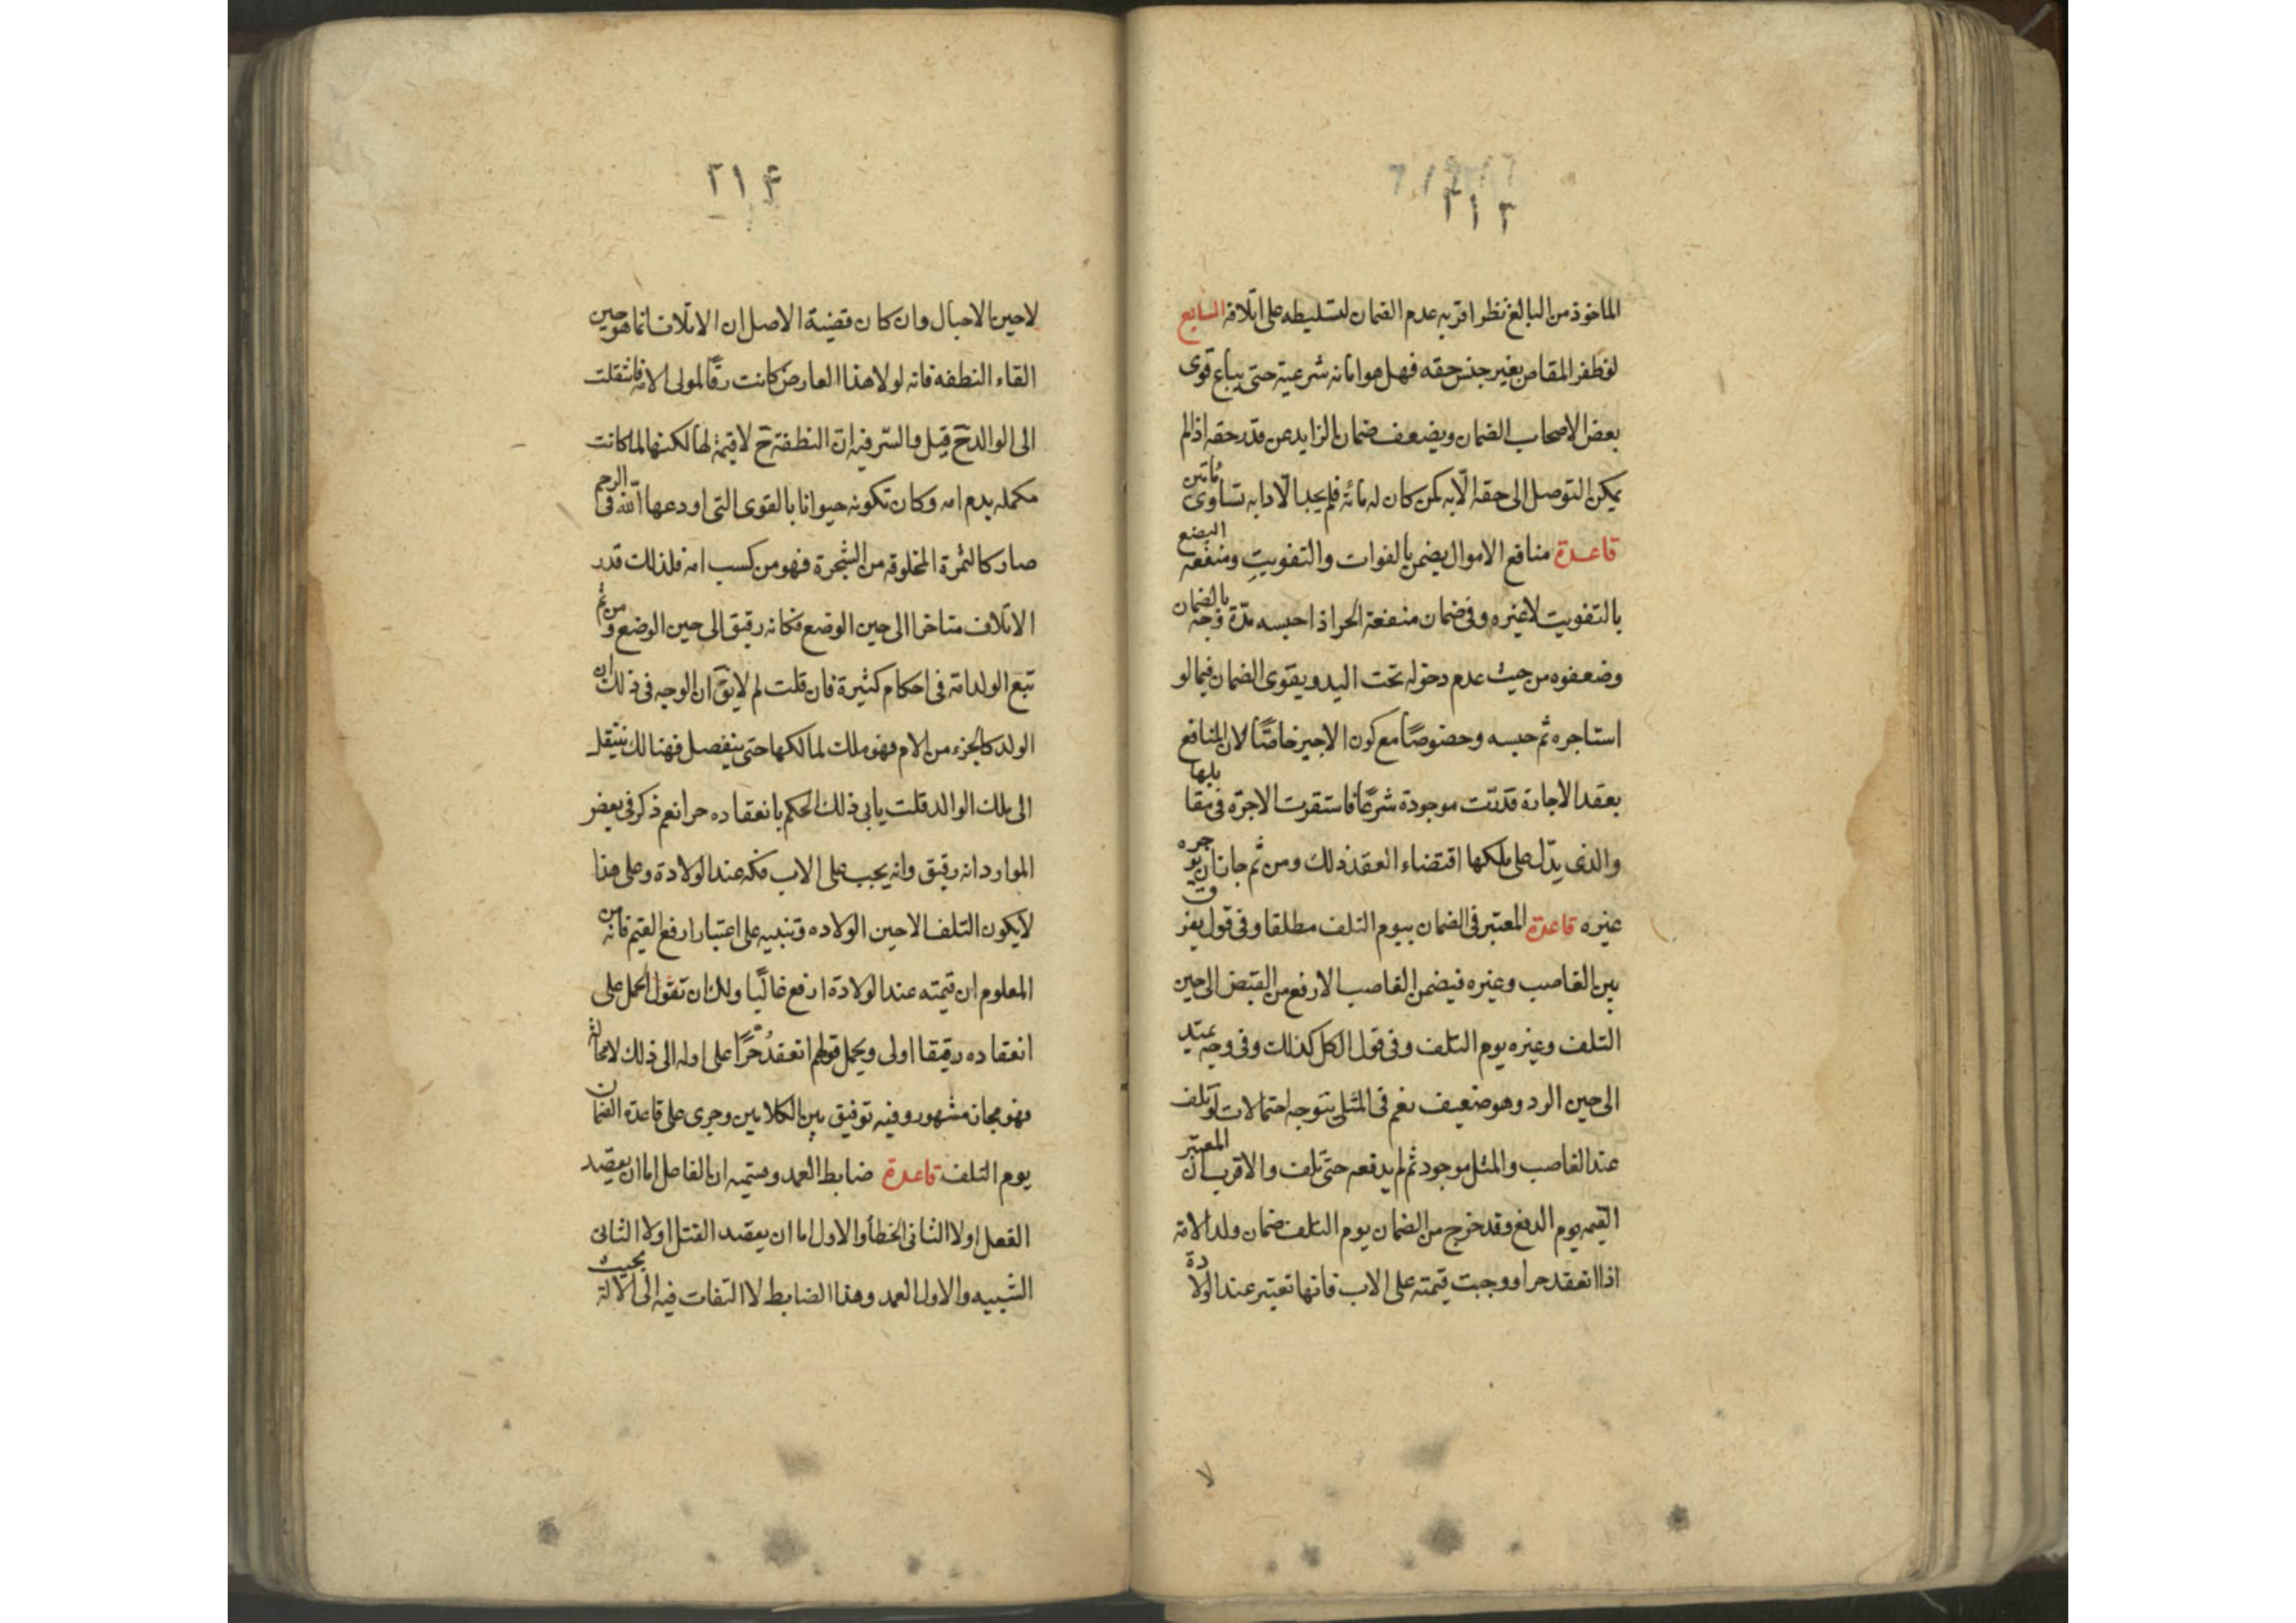 ٢١٣
الماخوذة من البالغ نظر اقربه عدم الضمان لتسليطه على اتلافه السابع
لو ظفر المقاص بغير جنس حقه فهل هو امانه شرعية حتى يباع قوى
بعض الاصحاب الضمان ويضعف ضمان الزايد عن قدر حقه اذا لم
يمكن التوصل الى حقه الّا به كمن كان له مائة فلم يجد الّا دابه تساوى مائتين
قاعدة منافع الاموال يضمن بالفوات والتفويت ومنفعة البضع
بالتفويت لا غيره وفى ضمان منفعة الحر اذا حبسه مدّة وجه بالضمان
وضعفوه من حيث عدم دخوله تحت اليد ويقوى الضمان فيما لو
استاجره ثم حبسه وخصوصًا مع كون الاجير خاصًّا لان المنافع
بعقد الاجارة قدرت موجودة شرعًا فاستقرت الاجرة فى مقابلها
والذى يدّل على ملكها اقتضاء العقد ذلك ومن ثم جاز ان يوجره
غيره قاعدة المعتبر فى الضمان بيوم التلف مطلقا وفى قول يفرق
بين الغاصب وغيره فيضمن الغاصب الارفع من القبض الى حين
التلف وغيره يوم التلف وفى قول الكل كذلك وفى وجه يمتد
الى حين الرد وهو ضعيف نعم فى المثلى يتوجه احتمالات لو تلف
عند الغاصب والمثل موجود ثم لم يدفعه حتى تلف والاقرب ان المعتبر
القيمه يوم الدفع وقد خرج من الضمان يوم التلف ضمان ولد الامة
اذا انعقد حرا ووجبت قيمته على الاب فانها تعتبر عند الولادة
لا
٢١۴
لا حين الاحبال وان كان قضية الاصل ان الاتلاف انما هو حين
القاء النطفه فانه لولا هذا العارض كانت رقًّا لمولى الامه فانتقلت
الى الوالد ح قيل والسّر فيه انّ النطفة ح لا قيمة لها لكنها لما كانت
مكمله بدم امه وكان تكونه حيوانا بالقوى التى اودعها اللّه فى الرحم
صار كالثمرة المخلوقه من الشجرة فهو من كسب امه فلذلك قدر
الاتلاف متاخرا الى حين الوضع فكانه رقيق الى حين الوضع ومن ثم
تبع الولد امه فى احكام كثيرة فان قلت لم لا يق ان الوجه فى ذلك ان
الولد كالجزء من الام فهو ملك لمالكها حتى ينفصل فهنالك ينتقل
الى ملك الوالد قلت يابى ذلك الحكم بانعقاده حرا نعم ذكر فى بعض
الموارد انه رقيق وانه يجب على الاب فكه عند الولادة وعلى هذا
لا يكون التلف الا حين الولاده وتنبيه على اعتبار ارفع القيم فانه من
المعلوم ان قيمته عند الولادة ارفع غالبًا ولك ان تقول الحمل على
انعقاده رقيقا اولى ويحمل قولهم انعقد حُرًّا على اوله الى ذلك لا محالة
فهو مجاز مشهور وفيه توفيق بين الكلامين وجرى على قاعدة الضمان
يوم التلف قاعدة ضابط العمد وقسيميه ان الفاعل اما ان يقصد
الفعل اولا الثانى الخطأ والاول اما ان يقصد القتل اولا الثانى
الشبيه والاول العمد وهذا الضابط لا التفات فيه الى الالة بحيث